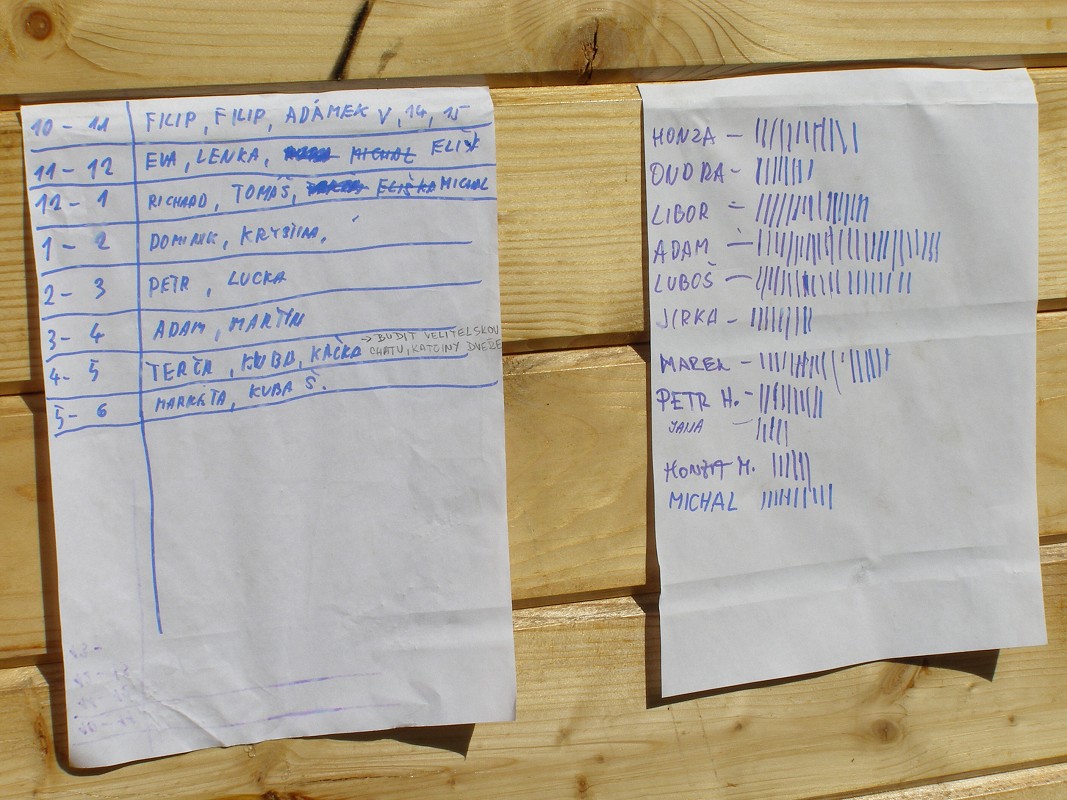 10 - 11 FILIP, FILIP, ADÁMEK V, 14, 15
11 - 12 EVA, LENKA, MICHAL ELIŠK
12 - 1 RICHARD, TOMÁŠ, ELIŠKA MICHAL
1 - 2 DOMINIK, KRYSTINA,
2 - 3 PETR, LUCKA
3 - 4 ADAM, MARTIN
→ BUDIT VELITELSKOU
CHATU, KATČINY DVEŘE
4 - 5 TERČA, KUBA, KÁČKA
5 - 6 MARKÉTA, KUBA Š.
HONZA -
ONDRA -
LIBOR -
ADAM -
LUBOŠ -
JIRKA -
MAREK -
PETR H. -
JANA -
HONZA M.
MICHAL